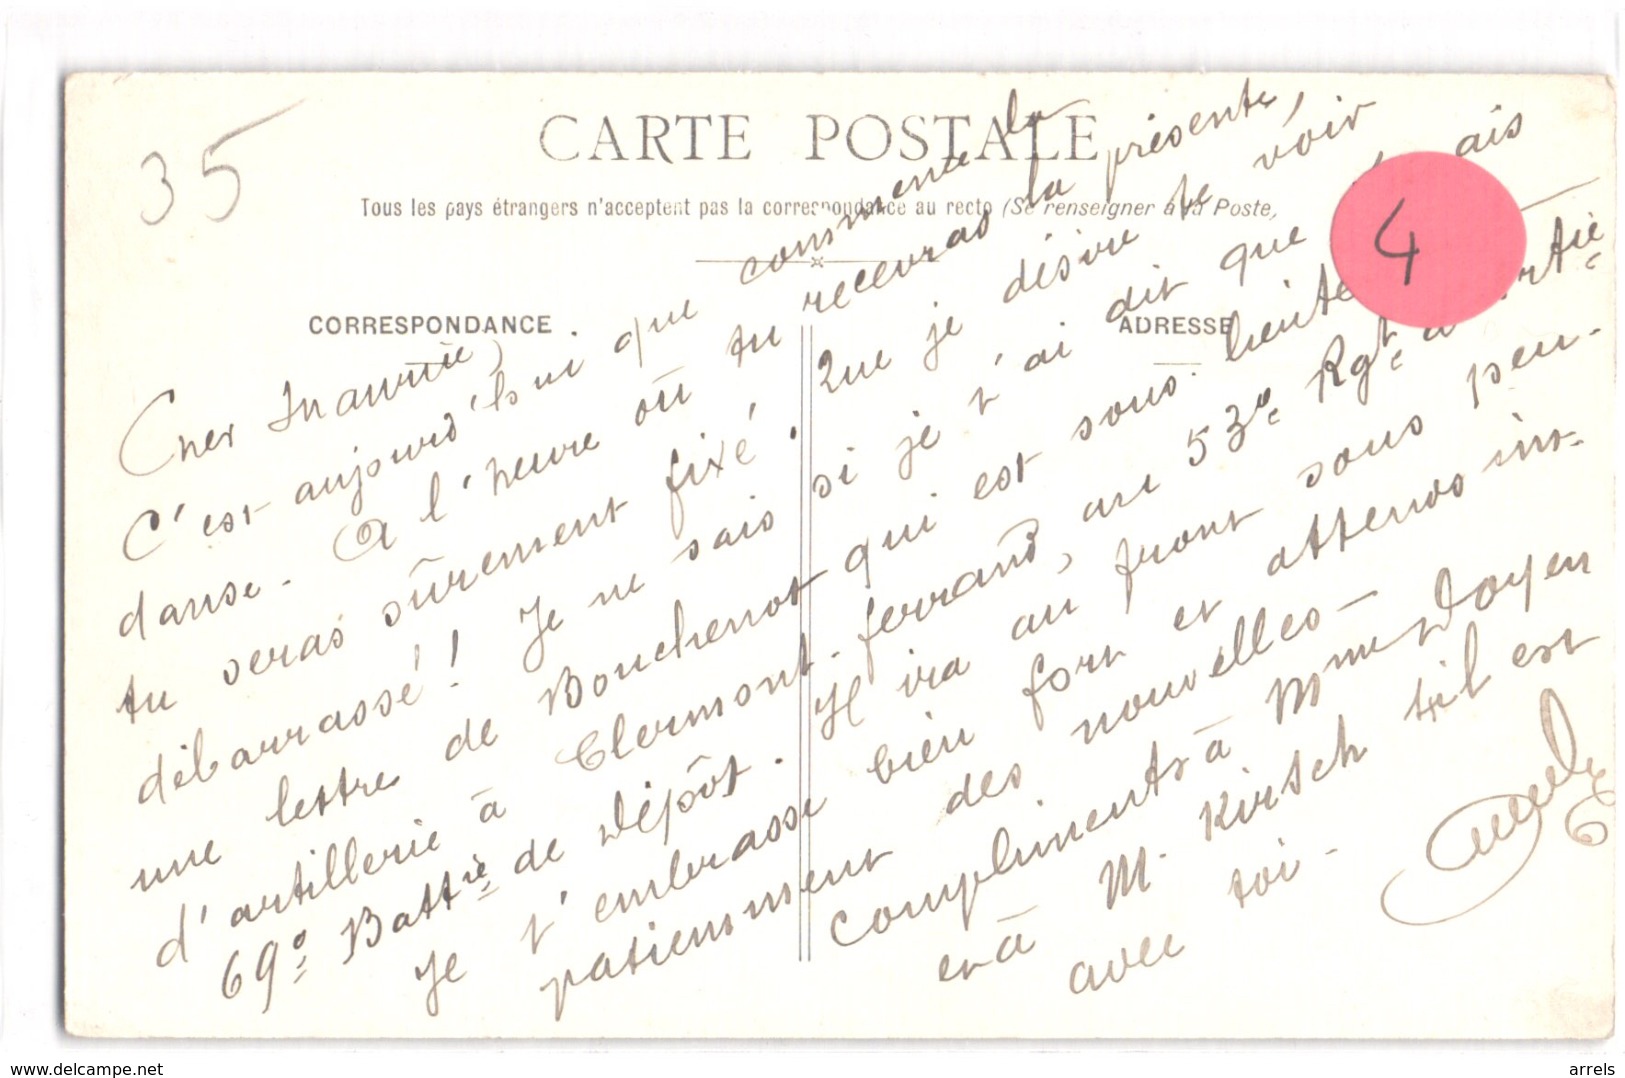 35
CARTE POSTALE
Tous les pays étrangers n'acceptent pas la correspondance au recto (Se renseigner à la Poste,
CORRESPONDANCE
ADRESSE
4
Cher Maurice,
C'est aujourd'hui que commence la
danse. A l'heure où tu recevras la présente,
tu seras sûrement fixé. Que je désire te voir
débarrassé! Je ne sais si je t'ai dit que j' ais
une lettre de Bouchenot qui est sous. lieute
d'artillerie à Clermont-ferrand, au 53e. Rgt. d' rtie.
69e. Battrie. de Dépôt. Il ira au front sous peu.
Je t'embrasse bien fort et attends im-
patiemment des nouvelles—
compliments à Mme Doyen
et à M. Kirsch s'il est
avec toi-
www.delcampe.net
arrels